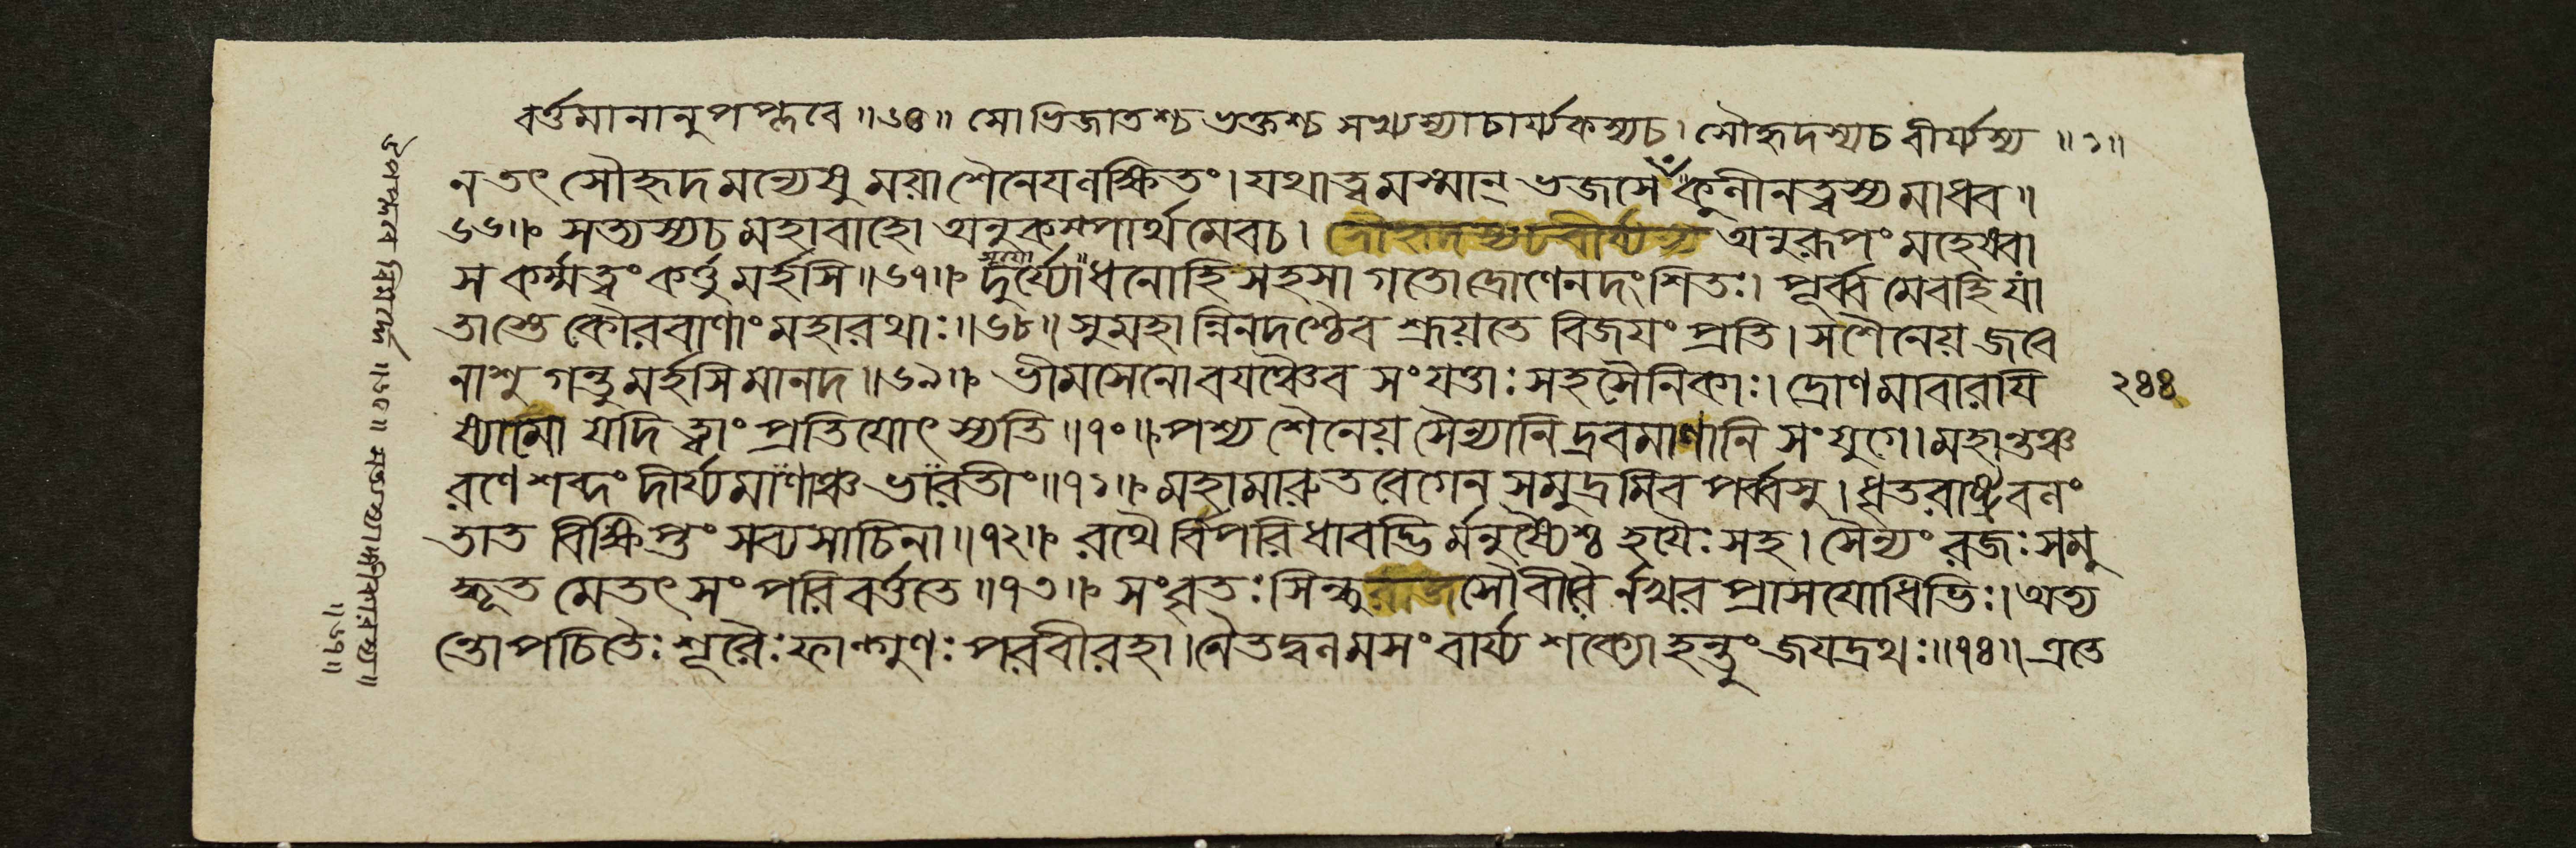 বর্ত্তমানানুপপ্লবে ॥৬৪॥ সোভিজাতশ্চ ভক্তশ্চ সখ্যস্যাচার্য্যকস্যচ। সৌহৃদস্যচ বীর্য্যস্য ॥১॥
ন তৎ সৌহৃদমন্যেষু ময়া শৈনেয় লক্ষিতং। যথা ত্বমস্মান্ ভজসে কুলীনত্বস্য মাধব॥
৬৬॥ সত্যস্যচ মহাবাহো অনুকম্পার্থমেবচ। সৌহৃদস্যচ বীর্য্যস্য অনুরূপং মহেষ্বা
স কর্ম্মত্বং কর্ত্তুমর্হসি॥৬৭॥ দুর্য্যোধনোহি সহসা গতো দ্রোণেন দংশিতঃ। পূর্ব্বমেবহি যা
তাস্তে কৌরবাণাং মহারথাঃ॥৬৮॥ সুমহান্নিনদশ্চৈব শ্রূয়তে বিজয়ং প্রতি। স শৈনেয় জবে
নাশু গন্তুমর্হসি মানদ॥৬৯॥ ভীমসেনো বয়ঞ্চৈব সংযত্তাঃ সহসৈনিকাঃ। দ্রোণমাবারয়ি
ষ্যামো যদি ত্বাং প্রতিযোৎস্যতি॥৭০॥ পশ্য শৈনেয় সৈন্যানি দ্রবমাণানি সংযুগে। মহান্তঞ্চ
রণে শব্দং দীর্য্যমাণাঞ্চ ভারতীং॥৭১॥ মহামারুতবেগেন সমুদ্রমিব পর্ব্বসু। ধার্ত্তরাষ্ট্রবলং
তাত বিক্ষিপ্তং সব্যসাচিনা॥৭২॥ রথৈর্বিপরিধাবদ্ভির্মনুষ্যৈশ্চ হয়ৈঃ সহ। সৈন্যং রজঃসমু
দ্ধূতমেতৎ সংপরিবর্ত্ততে॥৭৩॥ সংবৃতঃ সিন্ধুরাজসৌবীরৈর্নখরপ্রাসযোধিভিঃ। অত্য
ন্তোপচিতৈঃ শূরৈঃ ফাল্গুণঃ পরবীরহা। নৈতদ্বলমসংবার্য্য শক্যো হন্তুং জয়দ্রথঃ॥৭৪॥ এতে
২৪৪